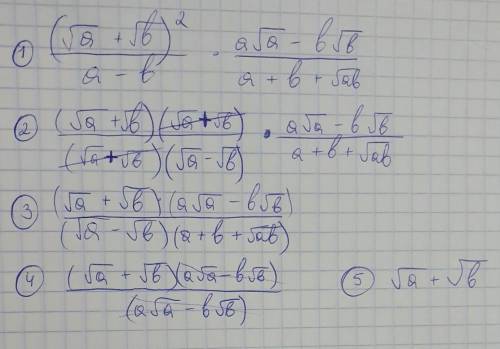 ① (√a + √b)² / (a - b) · (a√a - b√b) / (a + b + √ab)
② (√a + √b)(√a + √b) / (√a + √b)(√a - √b) · (a√a - b√b) / (a + b + √ab)
③ (√a + √b)·(a√a - b√b) / (√a - √b)(a + b + √ab)
④ (√a + √b)(a√a - b√b) / (a√a - b√b) ⑤ √a + √b